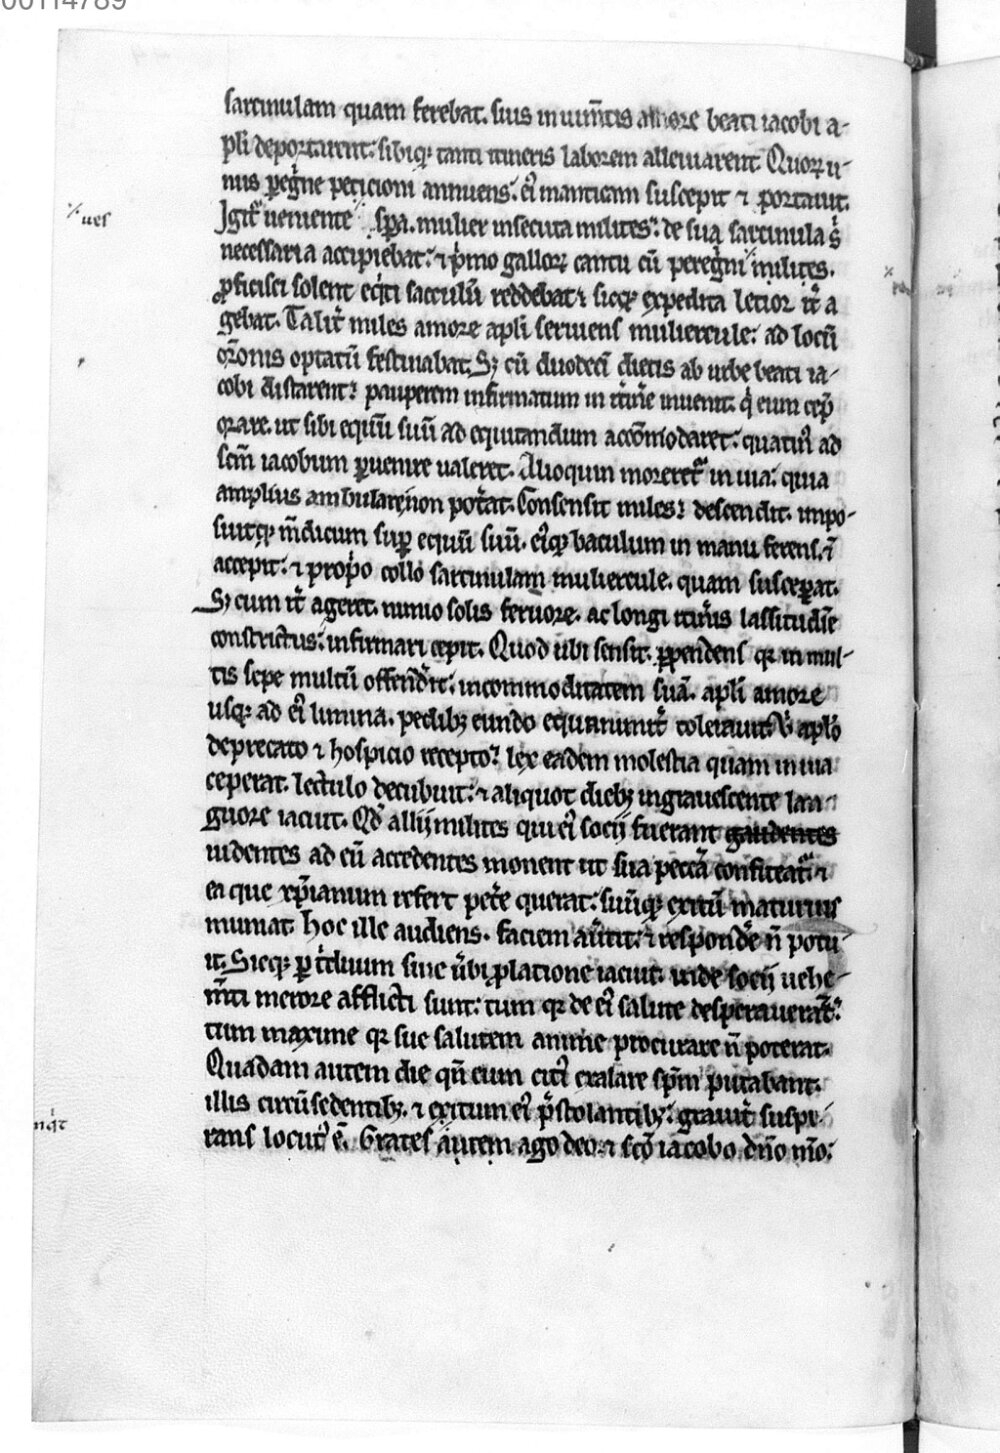 00114789
sarcinulam quam ferebat. suis in iumꝫtis amore beati iacobi a-
pli deportarent: sibiqꝫ tanti itineris laborem alleuiarent. Quoꝝ u-
nus pegͥne peticioni annuens. eiꝰ manticam suscepit ⁊ portauit.
Igitᷣ ueniente ⁒ spa. mulier insecuta milites: de sua sarcinula sͥ
⁒ ues
necessaria accipiebat: ⁊ pͥmo galloꝝ cantu cū peregͥni ⁒ milites.
ꝓficisci solent eqͥti sacculū reddebat: sicqꝫ expedita lecior itᷣ a
gebat. Talitᷣ miles amore apli seruiens muliercule: ad locū
orōnis optatū festinabat. Sꝫ cū duodecī dietis ab urbe beati ia-
cobi distaret: pauperem infirmatum in itᷣnͥe inuenit. qͥ eum cepͭ
orare. ut sibi equū suū ad equitandum accōmodaret: quatinꝰ ad
scm̄ iacobum ꝑuenire ualeret. Alioquin moreretᷣ in uia: quia
amplius ambulare non potᷣat. Consensit miles: descendit. impo-
suitqꝫ m̄dicum sup equū suū. eiꝰqꝫ baculum in manu ferens. ī
accepit: ⁊ propͥo collo sarcinulam muliercule. quam susceꝑat.
Sꝫ cum itᷣ ageret. nimio solis feruore. ac longi itinͥis lassitudīe
constrictus: infirmari cepit. Quod ubi sensit. ꝑpendens qꝛ in mul-
tis sepe multū offendͥit: incommoditatem suā. apli amore
usqꝫ ad eiꝰ limina. pedibꝫ eundo equanimitᷣ tolerauit. Uͥ aplo
deprecato ⁊ hospicio recepto: lex eadem molestia quam in uia
ceperat. lectulo decubuit: ⁊ aliquot diebꝫ ingrauescente lan-
guore iacuit. Qd̄ allij milites qui eiꝰ socij fuerant gaudentes
uidentes ad eū accedentes monent ut sua peccā confiteatᷣ: ⁊
ea que xp̄ianum refert petͥe querat: suūqꝫ exitū maturius
muniat. hoc ille audiens. faciem aūtit: ⁊ respondͥe n̄ potu
it. Sicqꝫ ꝑ tͥduum sine ūbi ꝓlatione iacuit. unde socij uehe-
m̄ti merore afflicti sunt: tum qꝛ de eiꝰ salute desperauerāt:
tum maxime qꝛ sue salutem anime procurare n̄ poterat.
Quadam autem die qn̄ eum citiꝰ exalare spm̄ putabant.
illis circūsedentibꝫ. ⁊ exitum eiꝰ pͥstolantibꝫ: grauitᷣ suspi-
rans locutꝰ ē. Grates autem ago deo. ⁊ scō iacobo. dn̄o mō:
nqͥt